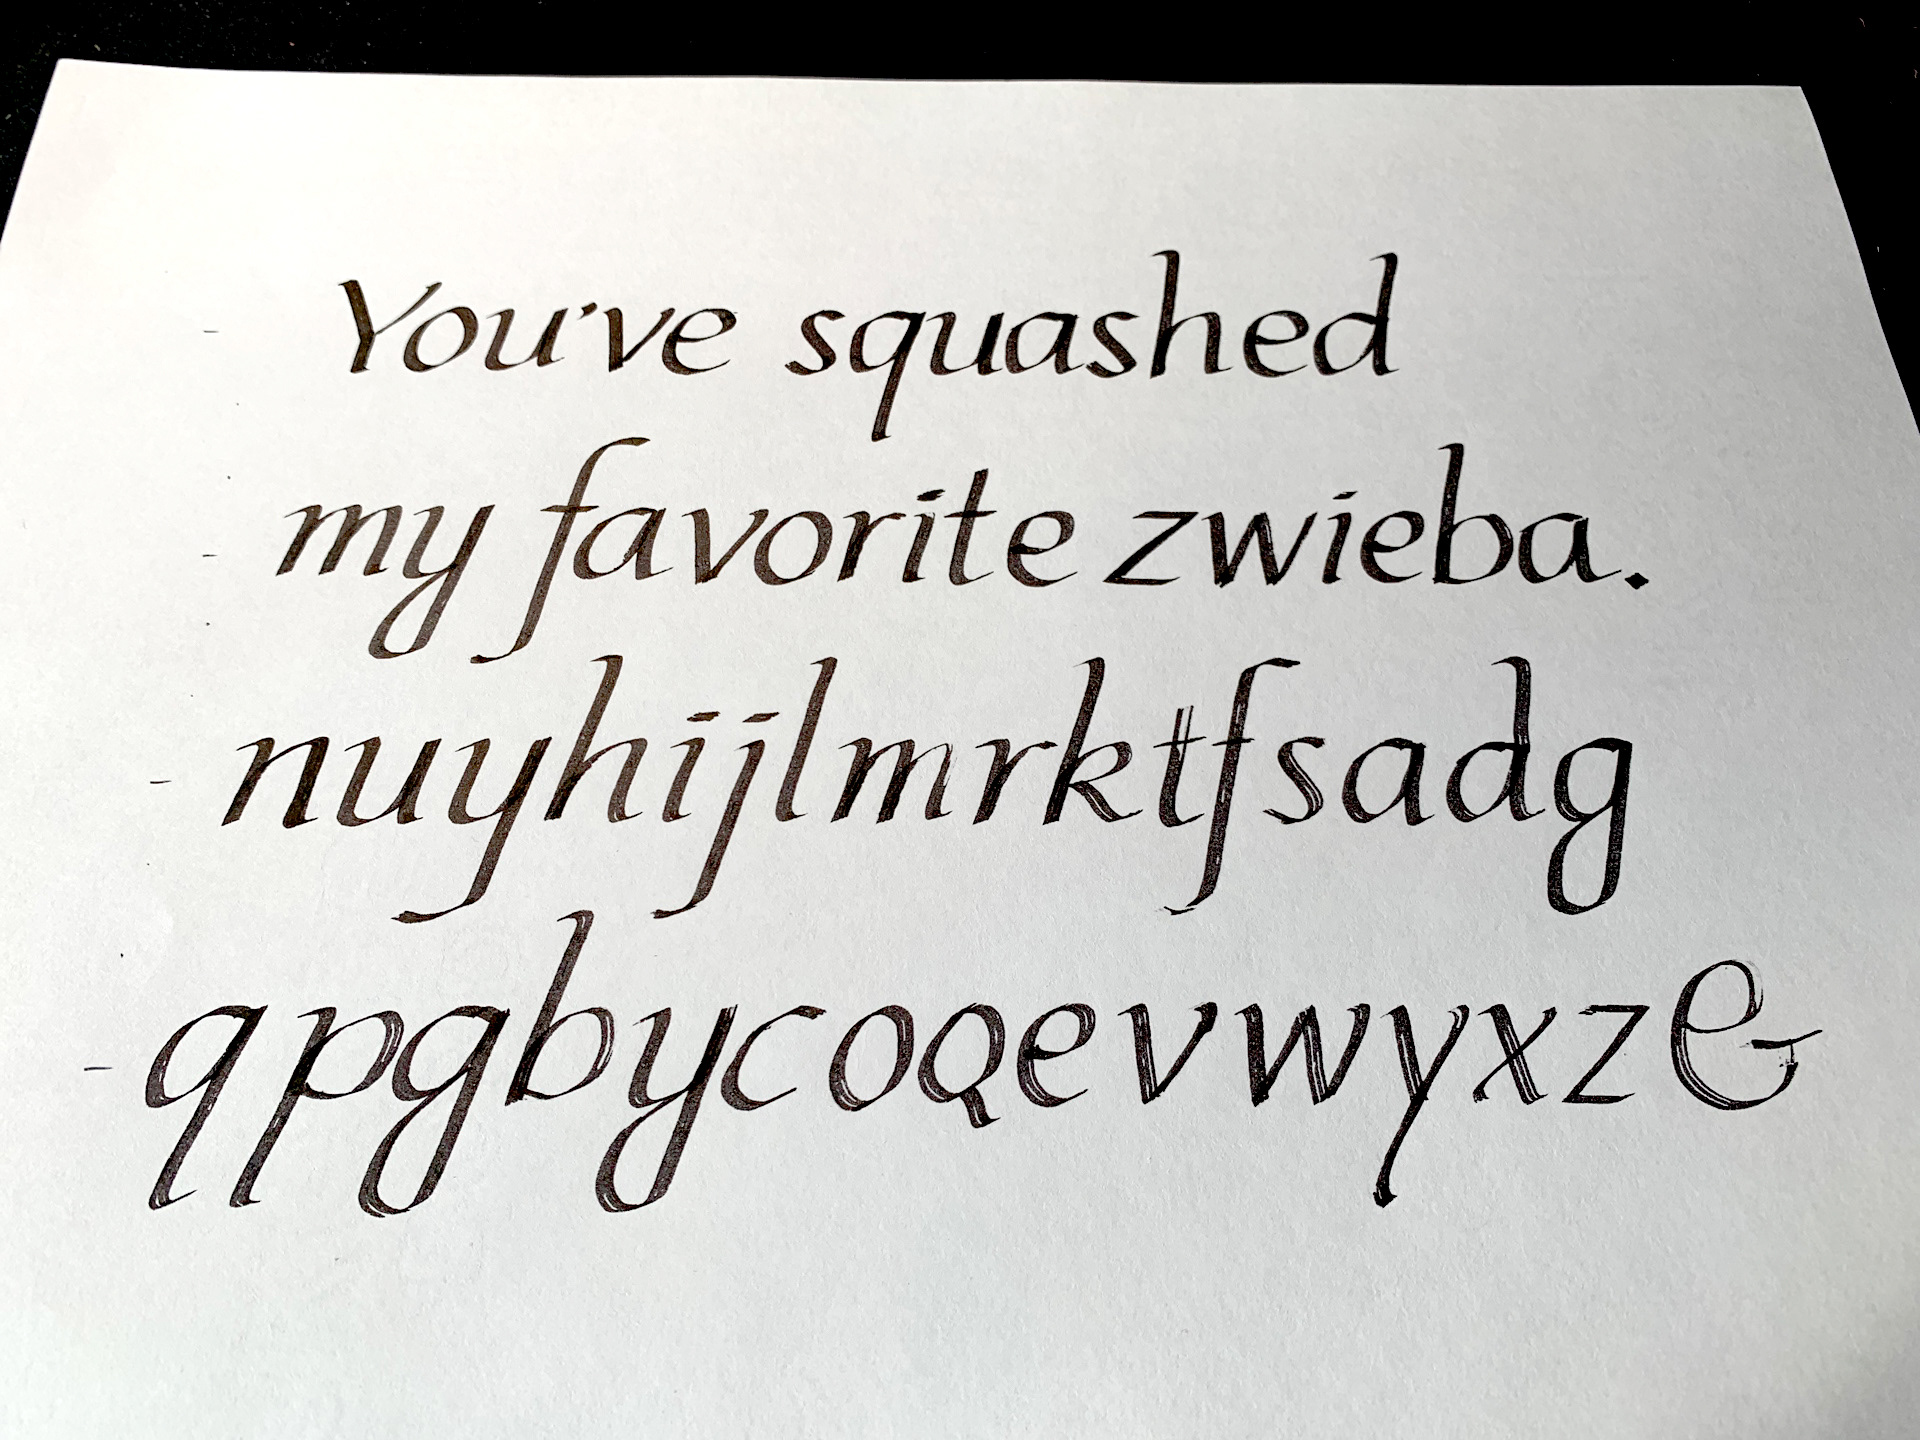 You've squashed
my favorite zwieba.
nuyhijlmrktfsadg
qpgbycoQevwyxz&